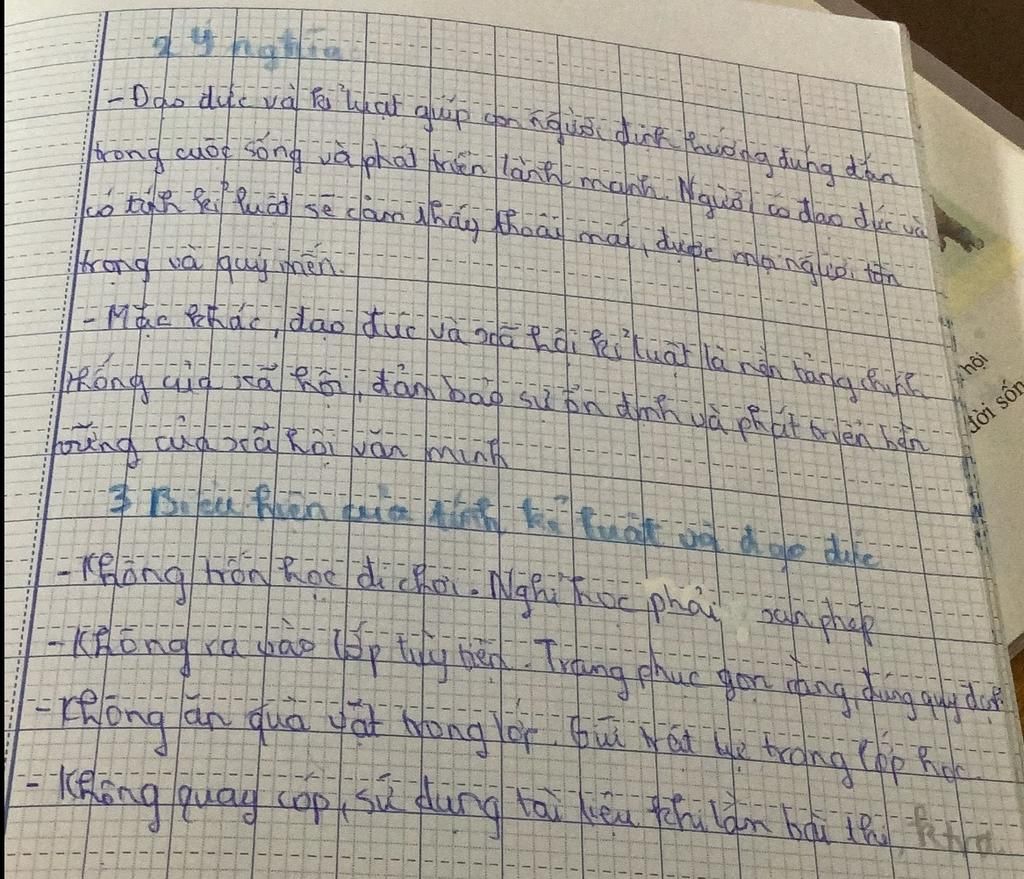 2 Ý nghĩa
- Đạo đức và kỉ luật giúp con người định hướng đúng đắn
trong cuộc sống và phát triển lành mạnh. Người có đạo đức và
có tính kỉ luật sẽ cảm thấy thoải mái, được mọi người tôn
trọng và quý mến.
- Mặc khác, đạo đức và xã hội kỉ luật là nền tảng chính
thống của xã hội, đảm bảo sự ổn định và phát triển bền
vững của xã hội văn minh
3 Biểu hiện của tính kỉ luật và đạo đức
- Không trốn học đi chơi. Nghỉ học phải xin phép
- Không ra vào lớp tùy tiện. Trang phục gọn gàng, đúng quy định
- Không ăn quà vặt trong lớp. trong lớp học.
- Không quay cóp, sử dụng tài liệu khi làm bài thi
hội
đời sốn